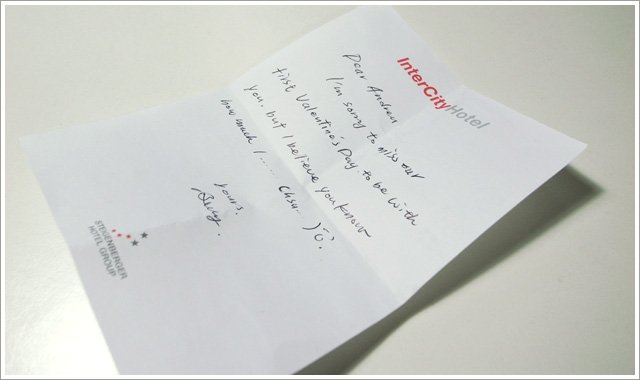 InterCityHotel
Dear Andrea
I'm sorry to miss our
first Valentine's Day to be with
you, but I believe you know
how much I ..... chsu..
yours
STEIGENBERGER
HOTEL GROUP